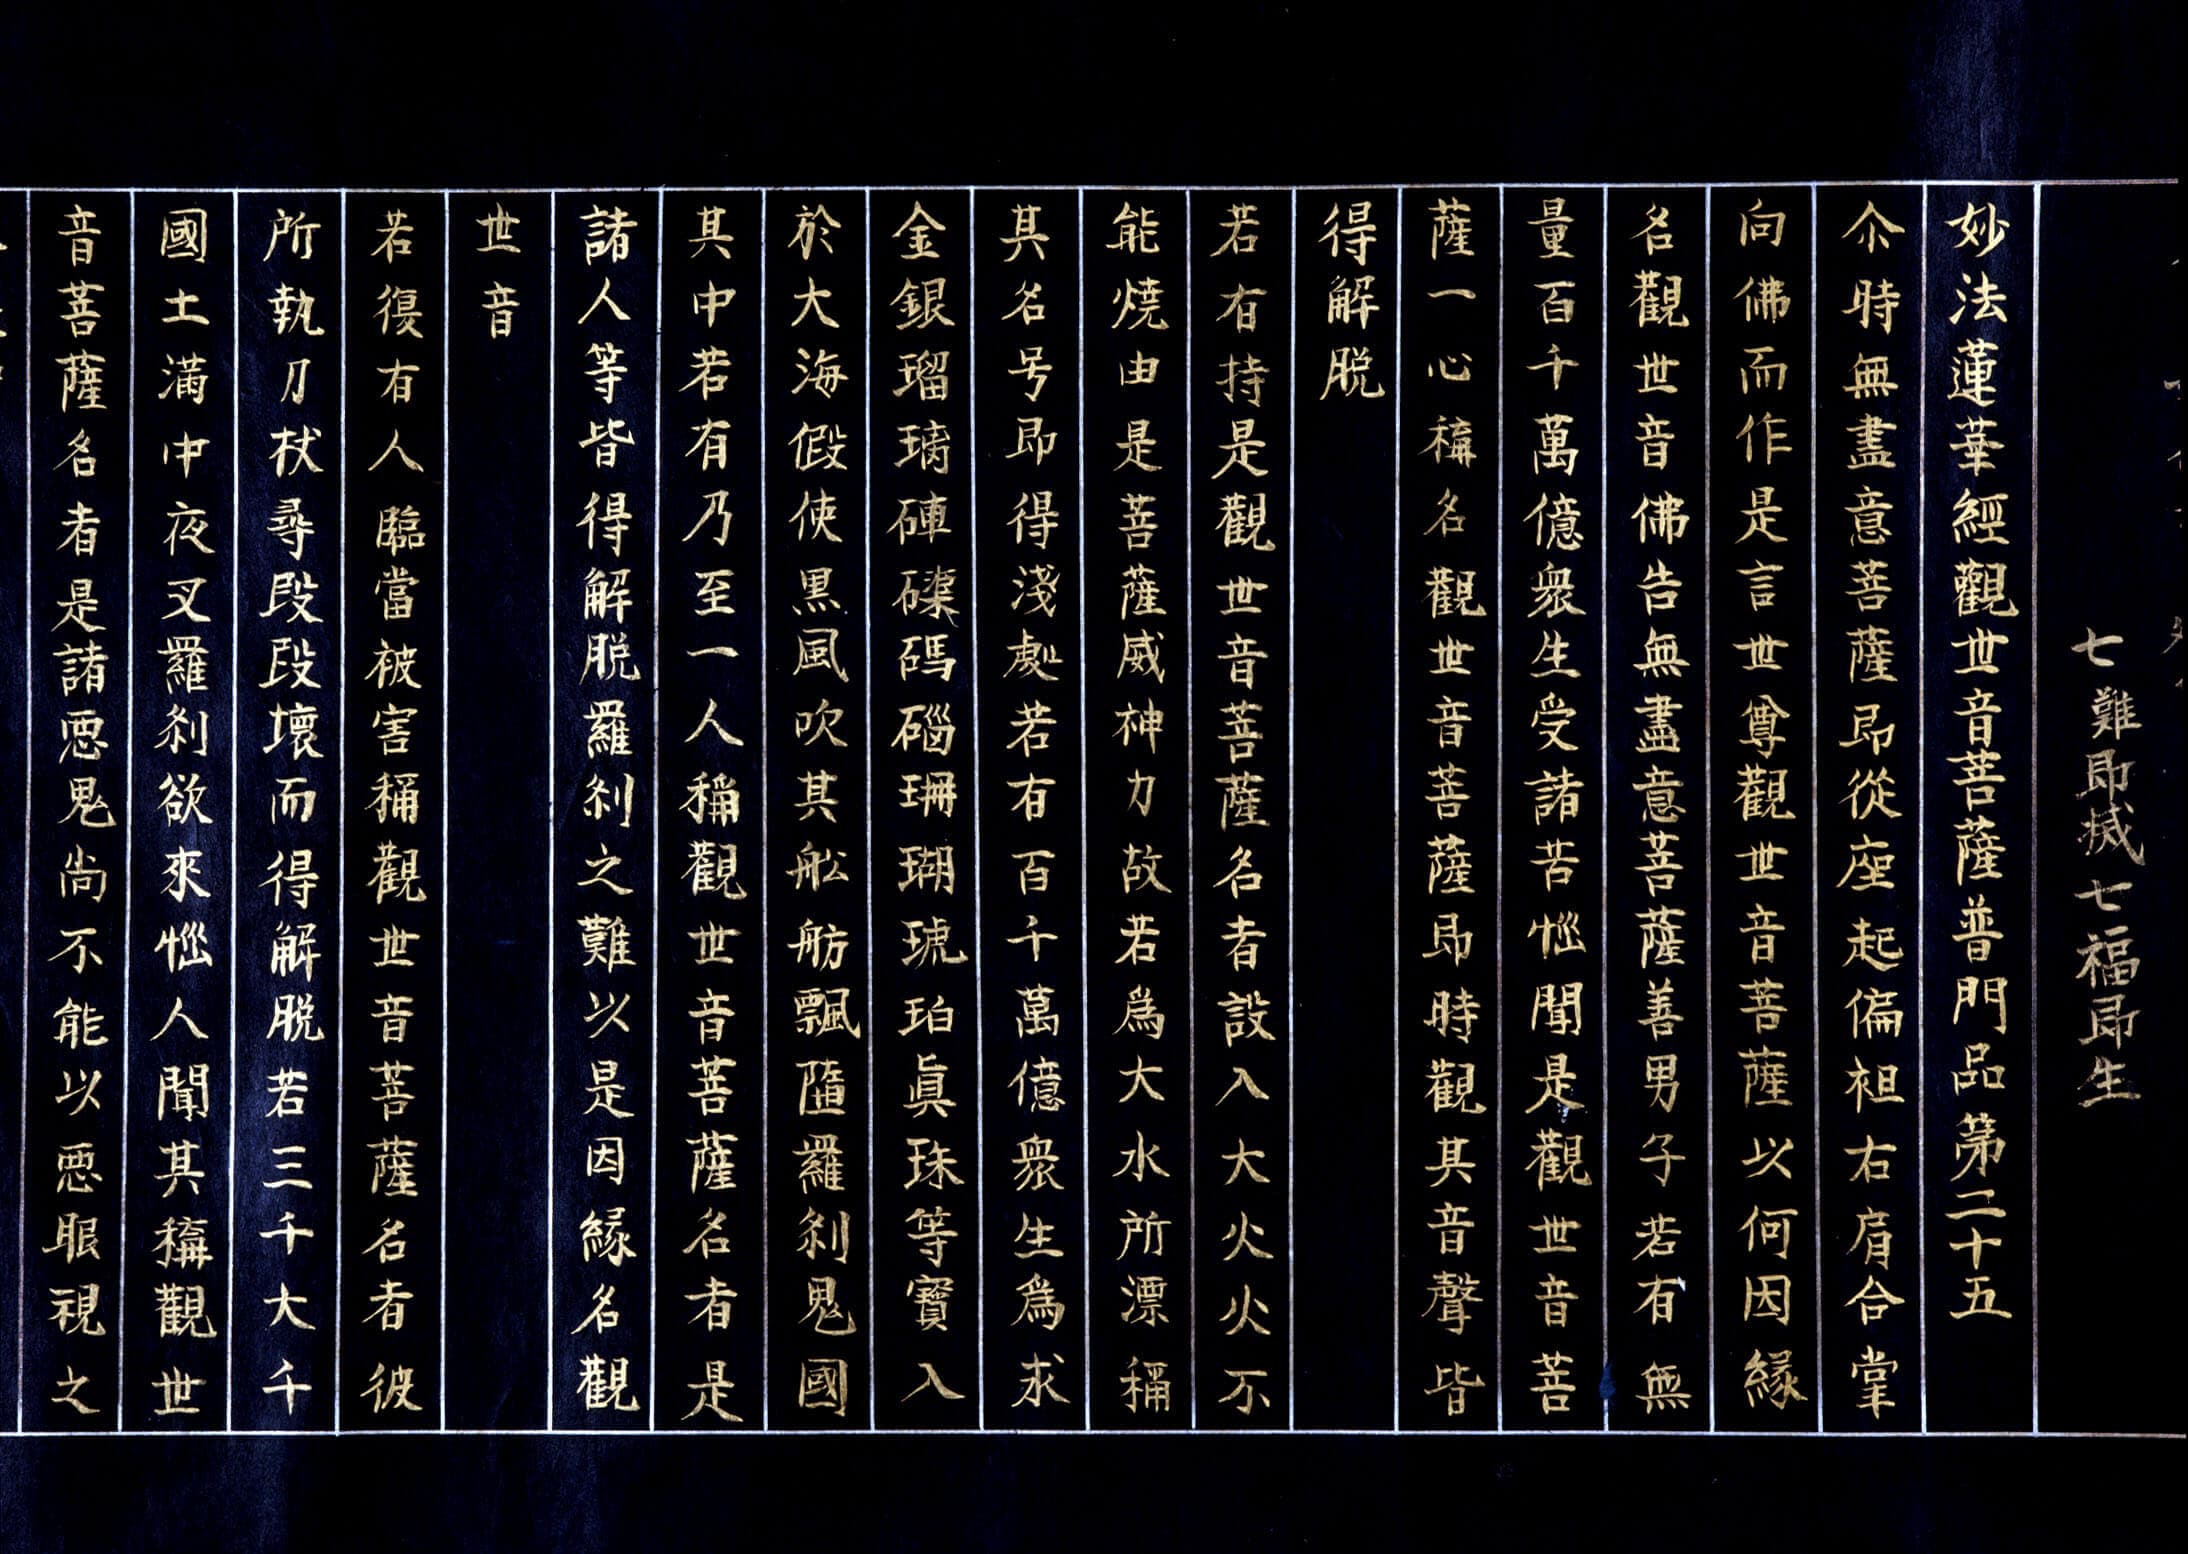 七難即滅七福即生
妙法蓮華經觀世音菩薩普門品第二十五
尒時無盡意菩薩即從座起偏袒右肩合掌
向佛而作是言世尊觀世音菩薩以何因緣
名觀世音佛告無盡意菩薩善男子若有無
量百千萬億衆生受諸苦惱聞是觀世音菩
薩一心稱名觀世音菩薩即時觀其音聲皆
得解脱
若有持是觀世音菩薩名者設入大火火不
能燒由是菩薩威神力故若爲大水所漂稱
其名号即得淺處若有百千萬億衆生爲求
金銀瑠璃硨磲碼碯珊瑚琥珀眞珠等寶入
於大海假使黒風吹其舩舫飄墮羅刹鬼國
其中若有乃至一人稱觀世音菩薩名者是
諸人等皆得解脱羅刹之難以是因緣名觀
世音
若復有人臨當被害稱觀世音菩薩名者彼
所執刀杖尋段段壞而得解脱若三千大千
國土滿中夜叉羅刹欲來惱人聞其稱觀世
音菩薩名者是諸惡鬼尚不能以惡眼視之